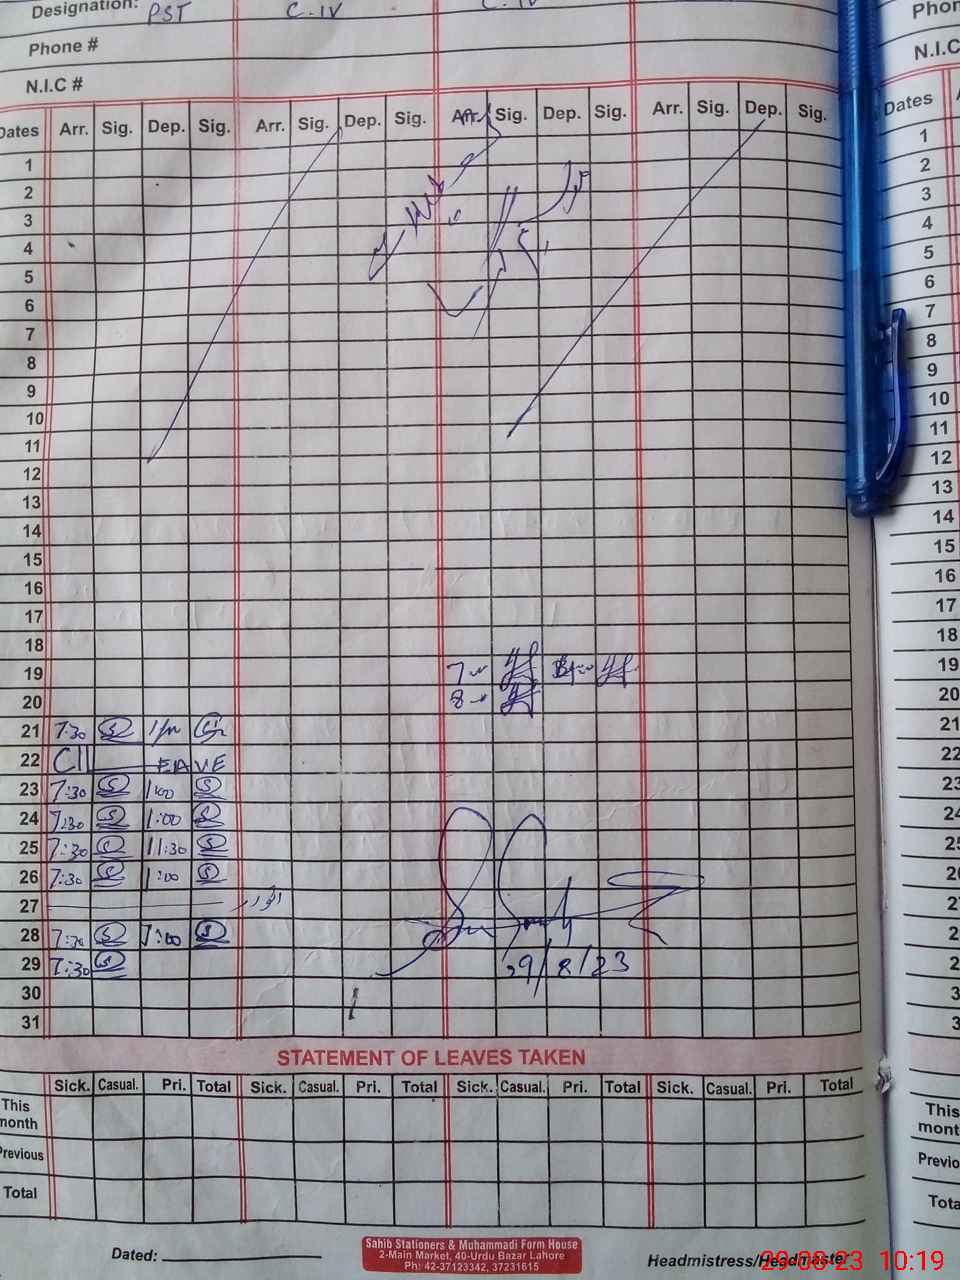 Designation: PST C.IV C.IV
Phone # Phon
N.I.C # N.I.C
Dates Arr. Sig. Dep. Sig. Arr. Sig. Dep. Sig. Arr. Sig. Dep. Sig. Arr. Sig. Dep. Sig. Dates
1 1
2 2
3 3
4 4
5 5
6 6
7 7
8 8
9 9
10 10
11 11
12 12
13 13
14 14
15 15
16 16
17 17
18 18
19 19
20 8 20
21 7:30 21
22 LEAVE 22
23 7:30 1:00 23
24 7:30 1:00 24
25 7:30 11:30 25
26 7:30 1:00
27
28 7:30
29 7:30 29/8/23
30
31
STATEMENT OF LEAVES TAKEN
Sick. Casual. Pri. Total Sick. Casual. Pri. Total Sick. Casual. Pri. Total Sick. Casual. Pri. Total
This month This mont
Previous Previo
Total Tota
Dated:
Sahib Stationers & Muhammadi Form House
2-Main Market, 40-Urdu Bazar Lahore
Ph: 42-37123342, 37231615
Headmistress/Headmaster
29-08-23 10:19